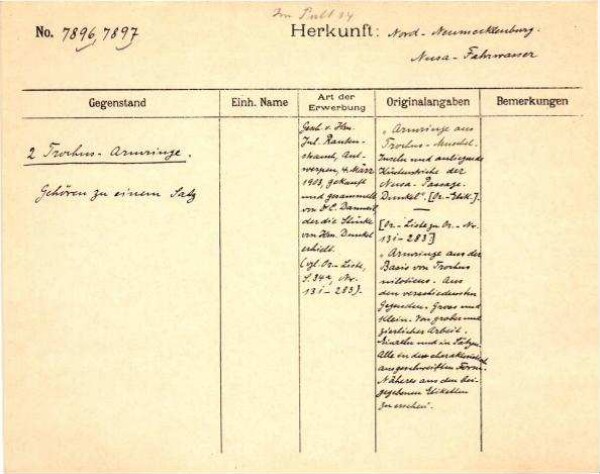 Im Pult 14
No. 7896, 7897
Herkunft: Nord-Neumecklenburg.
Nusa-Fahrwasser
Gegenstand
Einh. Name
Art der
Erwerbung
Originalangaben
Bemerkungen
2 Trochus-Armringe.
Gehören zu einem Satz
Gesch. v. Hrn.
Jul. Rauten-
strauch, Ant-
werpen, 4. März
1903, gekauft
und gesammelt
von
der die Stücke
von Hrn. Dunkel
erhielt.
(vgl. Or-Liste,
S. 34a, No.
13i-283).
"Armringe aus
Trochus-Muschel.
Inseln und anliegende
Küstenstriche der
Nusa-Passage.
Dunkel". [Or-Etik.].
[Or-Liste zu Or-No.
13i-283]
"Armringe aus der
Basis von Trochus
niloticus. Aus
den verschiedensten
Gegenden. Gross und
klein. Von grober und
zierlicher Arbeit.
Einzeln und in Sätzen.
Alle in der charakterist.
ausgeschweiften Form.
Näheres aus den bei-
gegebenen Etiketten
zu ersehen".